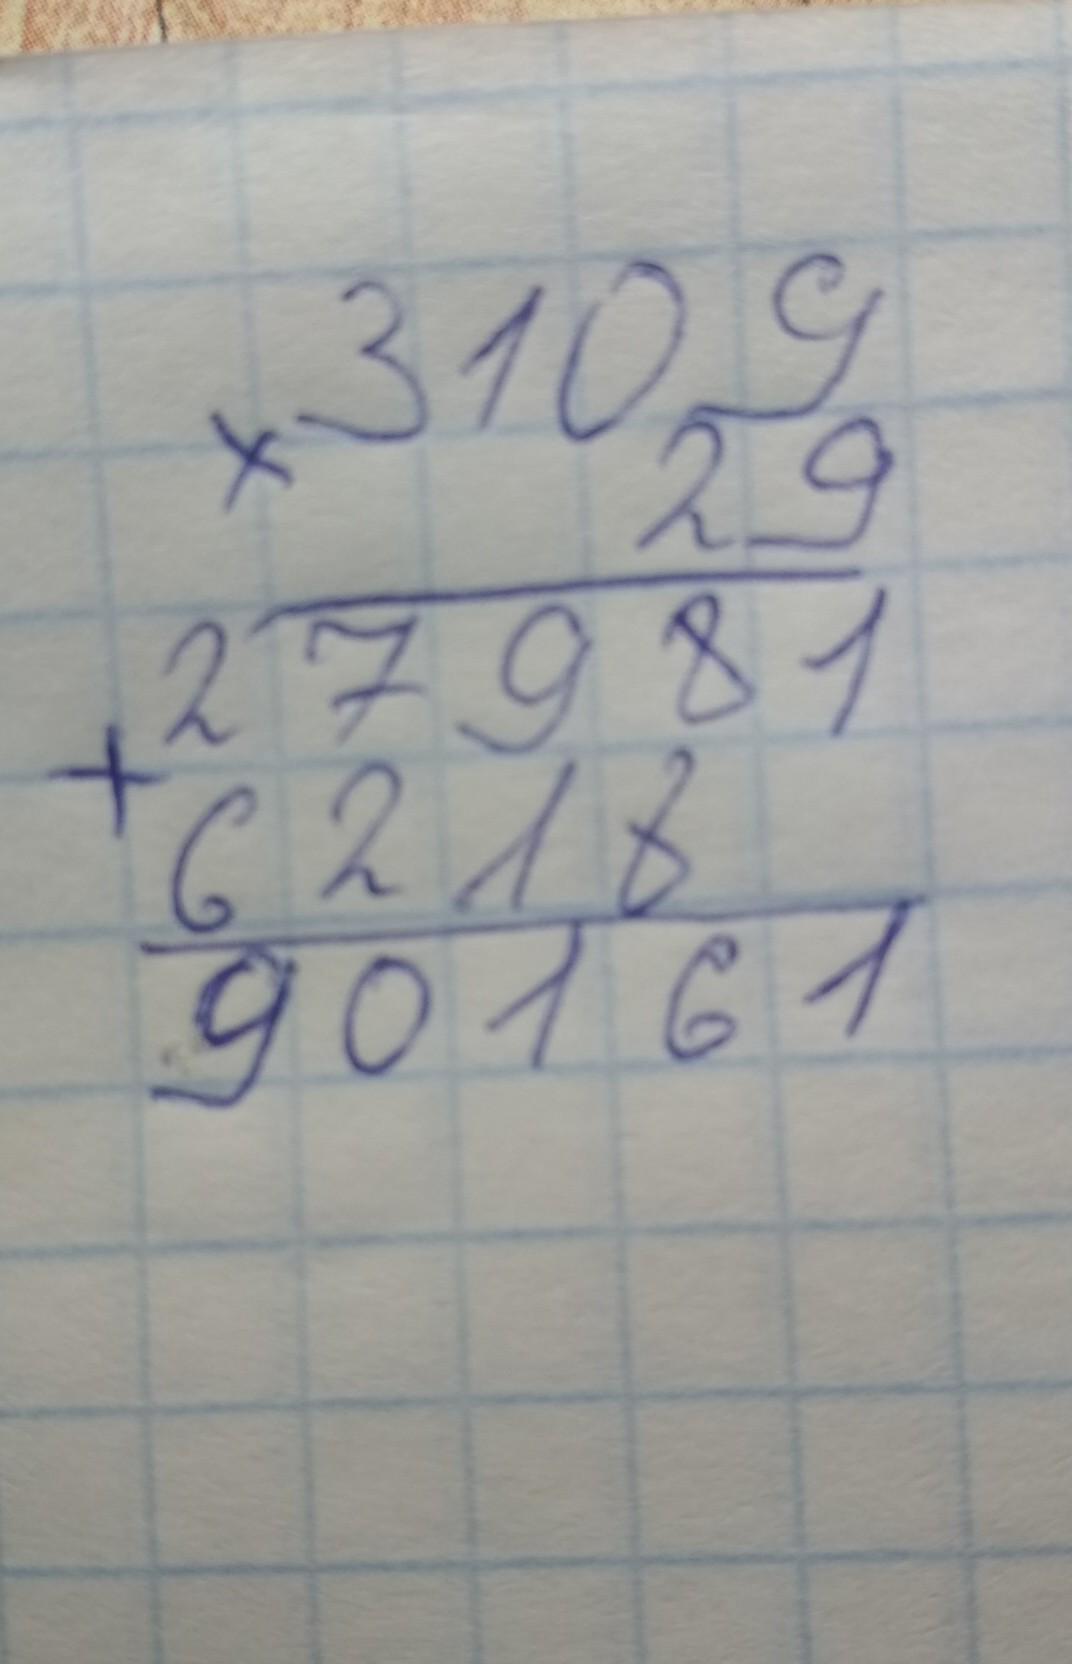 3109
× 29
27981
+ 6218
90161